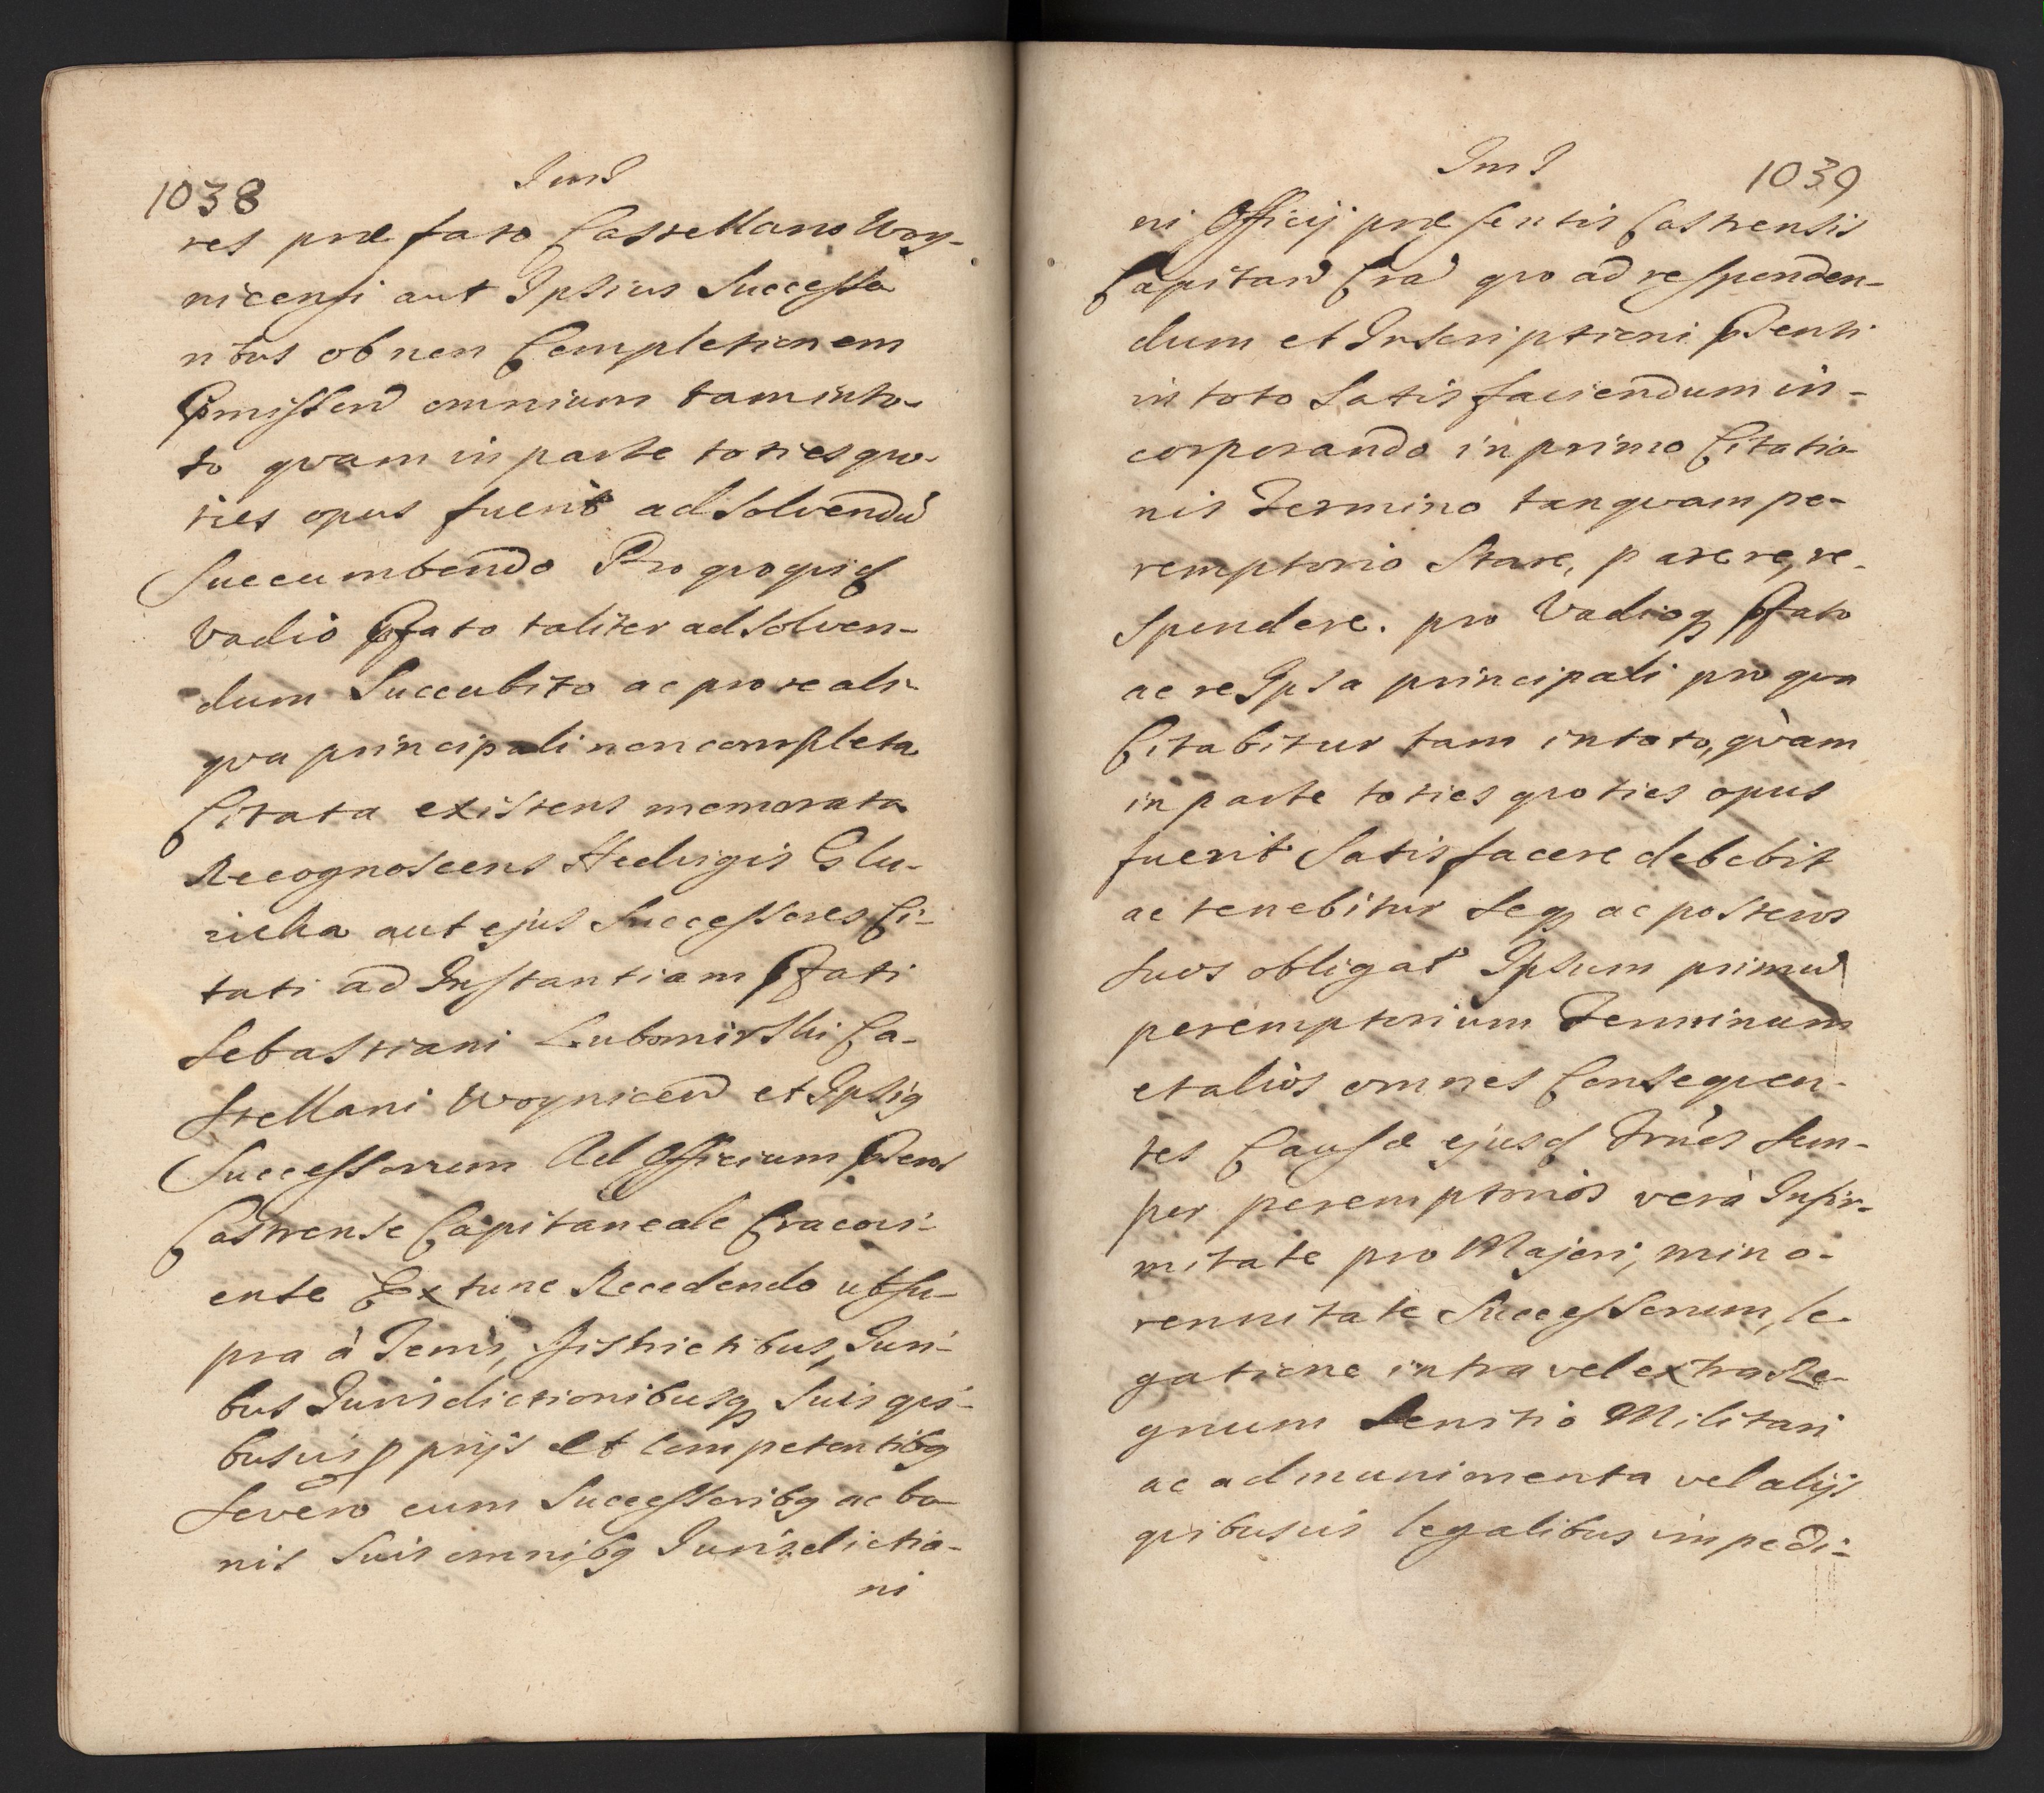 1038
res præfato Castellano Woy-
nicensi aut Ipsius Successo
ribus ob non Completionem
Pmissoru omnium tam in to-
to qvam in parte toties qvo-
ties opus fuerit ad Solvendu
Succumbendo Pro qvo qvid
Vadio Pfato taliter ad Solven-
dum Succubito ac pro re ali-
qva principali non completa
Citata existens memorata
Recognoscens Hedvigis Glu-
zicka aut ejus Successores Ci-
tati ad Instantiam Pfati
Sebastiani Lubomirski Ca-
stellani Woynicen et Ipsiq
Successorum Ad Officium Psens
Castrense Capitaneale Cracovi-
ense Ex tunc Recedendo ut su-
pra à Terris, Districtibus, Juri-
bus Jurisdictionibusq Suis qvi-
busvis pprijs et Competentibq
Severo cum Successoribq ac bo-
nis Suis omnibq Jurisdictio-
ni
1039
ni Officij præsentis Castrensis
Capitan Cra qvo ad responden-
dum et Inscriptioni Psenti
in toto Satisfaciendum in-
corporando in primo Citatio-
nis Termino tanqvam pe-
remptorio Stare, parere, re-
spondere. pro Vadioq Pfato
ac re Ipsa principali pro qva
Citabitur tam in toto, qvàm
in parte toties qvoties opus
fuerit Satisfacere debebit
ac tenebitur Seq ac posteros
Suos obligat Ipsum primu
peremptorium Terminum
et aliòs omnes Conseqven-
tes Causæ ejusd Trnos Sem-
per peremptorios verà Infir-
mitate pro Majori, mino-
rennitate Successorum, le-
gatione intra vel extra Re-
gnum Servitio Militari
ac ad munimenta vel alijs
qvibusvis legalibus impedi-